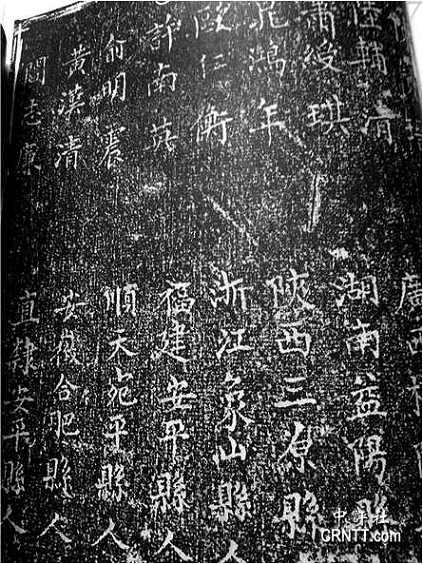 輔清 廣西
蕭綬琪 湖南益陽縣
鴻年 陝西三原縣
歐仁衡 浙江象山縣人
許南英 福建安平縣人
俞明震 順天宛平縣人
黃漢清 安徽合肥縣人
閻志廉 直隸安平縣人
中評社
CRNTT.com